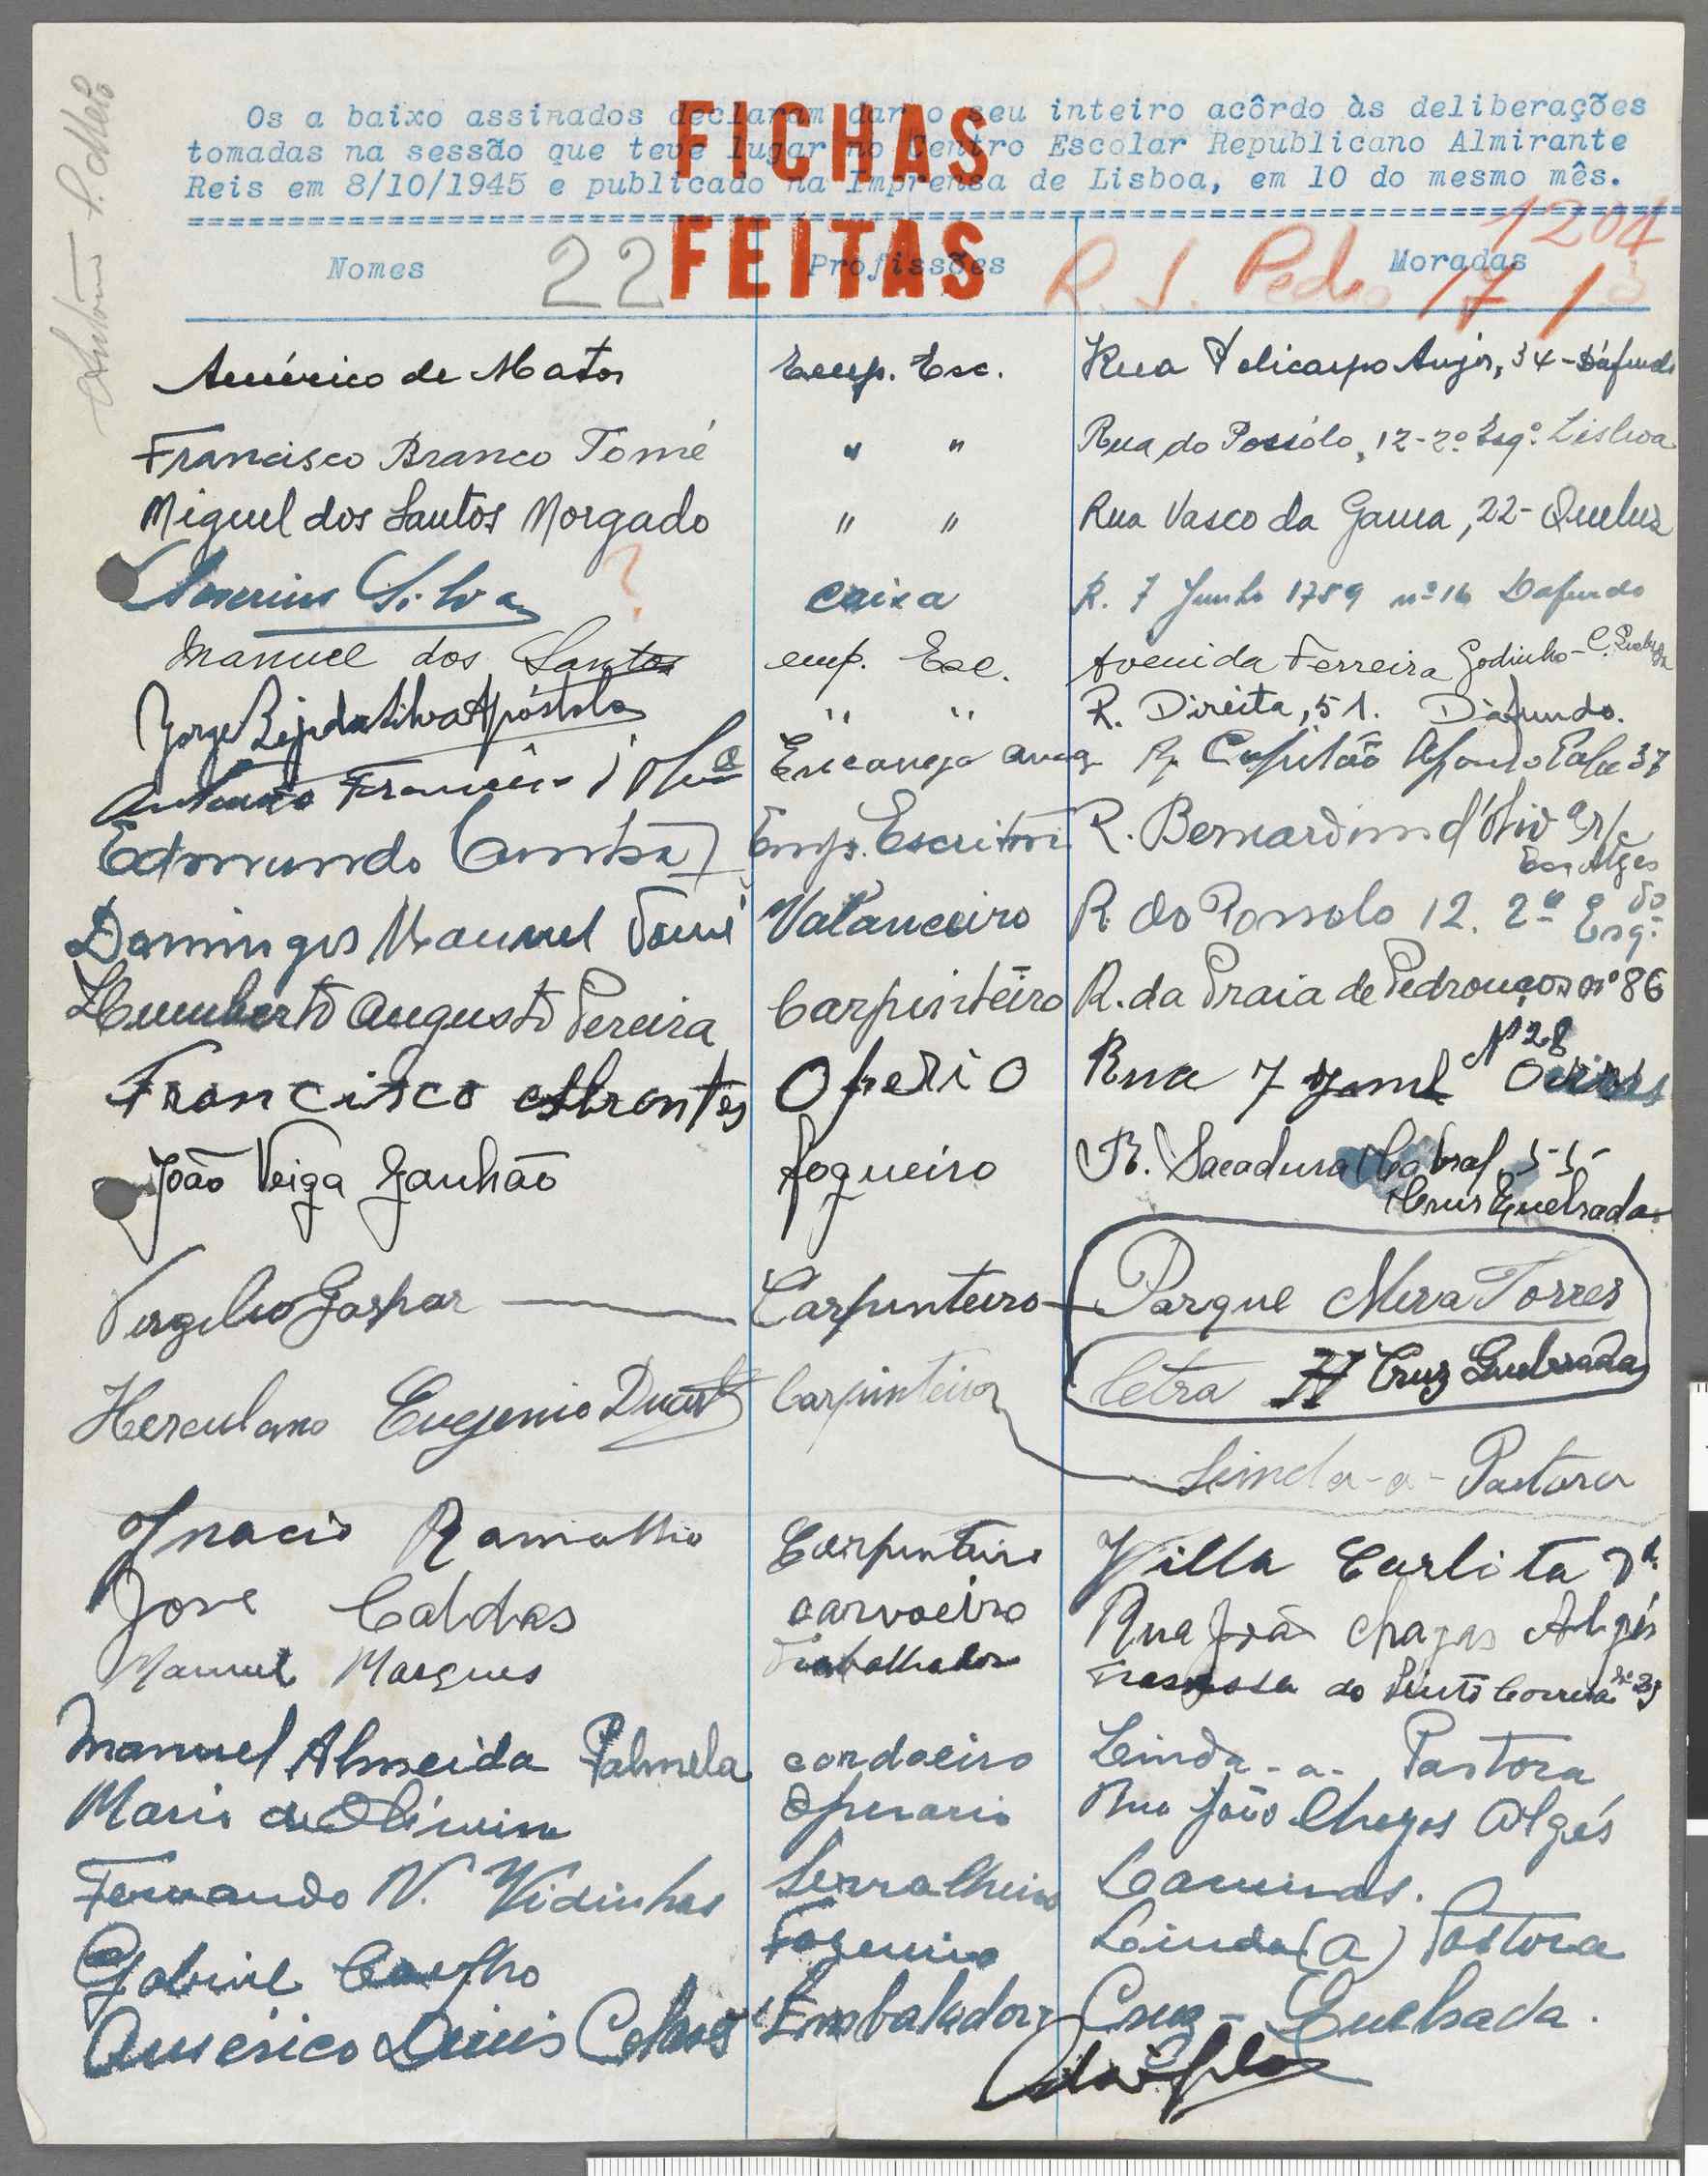 António S. Melo
Os a baixo assinados declaram dar o seu inteiro acôrdo às deliberações
tomadas na sessão que teve lugar no Centro Escolar Republicano Almirante
Reis em 8/10/1945 e publicado na Imprensa de Lisboa, em 10 do mesmo mês.
FICHAS
FEITAS
1204
Nomes 22 Profissões Moradas
R. S. Pedro 17 1º
Américo de Matos Emp. Esc. Rua Policarpo Anjos, 34 - Dáfundo
Francisco Branco Tomé " " Rua do Possólo, 12-2º Esqº. Lisboa
Miguel dos Santos Morgado " " Rua Vasco da Gama, 22 - Queluz
Silva ? caixa R. 7 Junho 1759 nº 16 Dafundo
Manuel dos Santos emp. Esc. Avenida Ferreira Godinho - C. Quebrada
Jorge da Silva Apóstolo " " R. Direita, 51. Dáfundo.
António Francisco R. Capitão Afonso Pala 37
Edmundo Cunha Emp. Escritório R. Bernardim d'Olivª r/c
Esq Algés
Domingos Manuel Tomé Valanceiro R do Possolo 12. 2º
Esqº
Humberto Augusto Pereira Carpinteiro R. da Praia de Pedrouços nº 86
Francisco Abrantes Operio Rua 7 Junh Nº 28 Oeiras
João Veiga Ganhão fogueiro R. Sacadura Cabral, 5-5-
Cruz Quebrada
Virgilio Gaspar Carpinteiro Parque Mira Torres
letra H Cruz Quebrada
Herculano Eugenio Duart Carpinteiro
Linda-a-Pastora
Ynacio Ramalho Carpinteiro Villa Carlita
José Caldas carvoeiro Rua João Chagas Algés
Manuel Marques Trabalhador Trasvessa do Pinto Correia nº 25
Manuel Almeida Palmela cordoeiro Linda-a-Pastora
Mario de Oliveira Operario Rua João Chagas Algés
Fernando N. Vidinhas Serralheiro Caxias.
Gabriel Coelho Fogueiro Linda (a) Pastora
Américo Dinis Embalador Cruz-Quebrada.